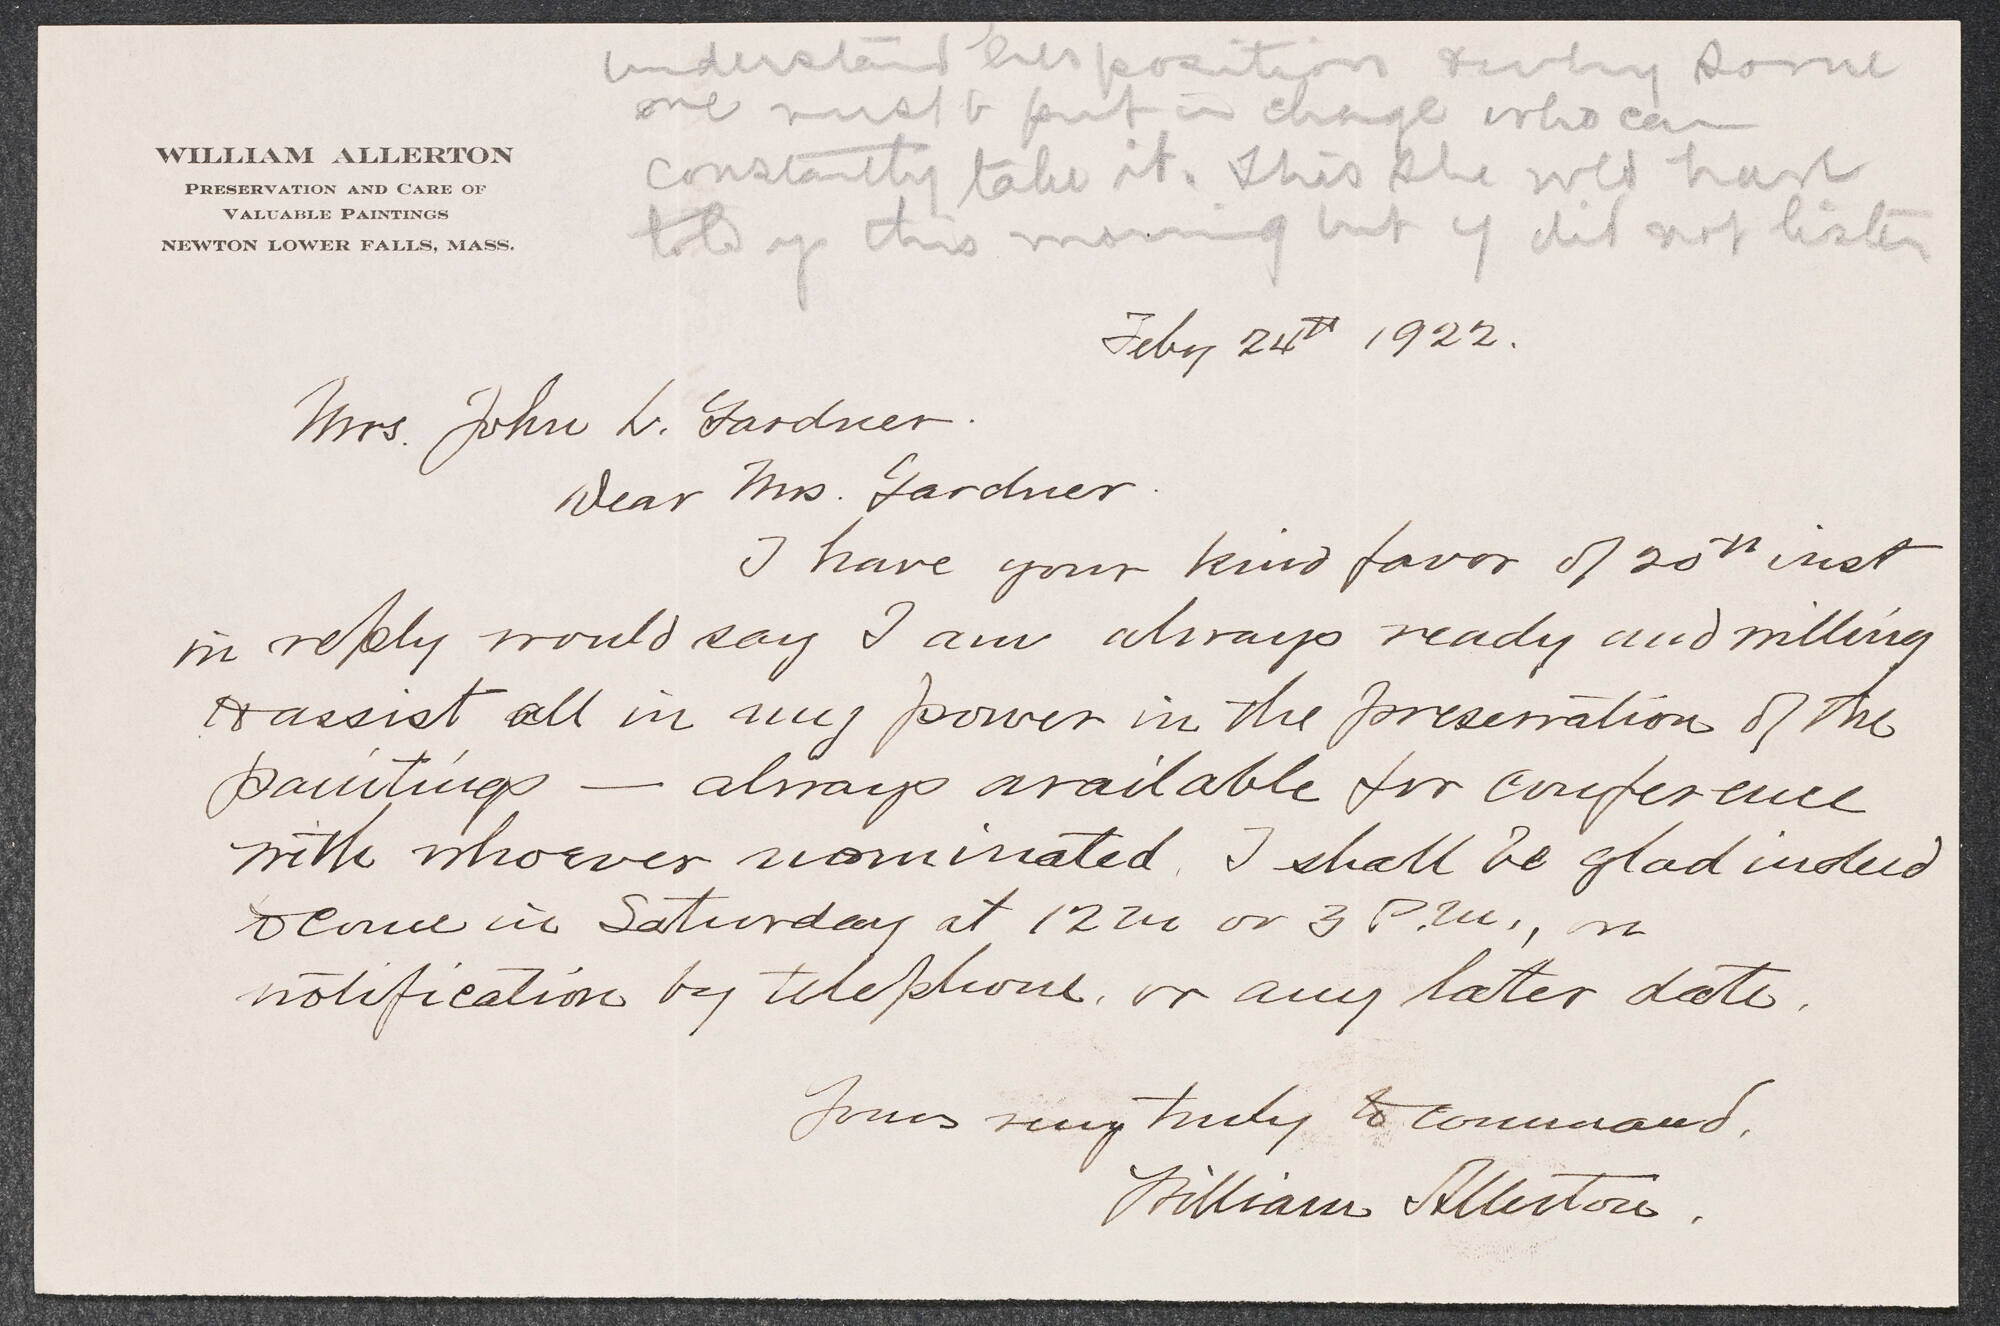 understand her position & why some
one must b put in charge who can
constantly take it. This she wld have
told y this morning but y did not listen
WILLIAM ALLERTON
PRESERVATION AND CARE OF
VALUABLE PAINTINGS
NEWTON LOWER FALLS, MASS.
Feby 24th 1922.
Mrs. John L. Gardner.
Dear Mrs. Gardner.
I have your kind favor of inst
in reply would say I am always ready and willing
to assist all in my power in the preservation of the
paintings — always available for conference
with whoever nominated. I shall be glad indeed
to come in Saturday at 12 m or 3 P.M., on
notification by telephone, or any later date.
Yours very truly to command,
William Allerton.